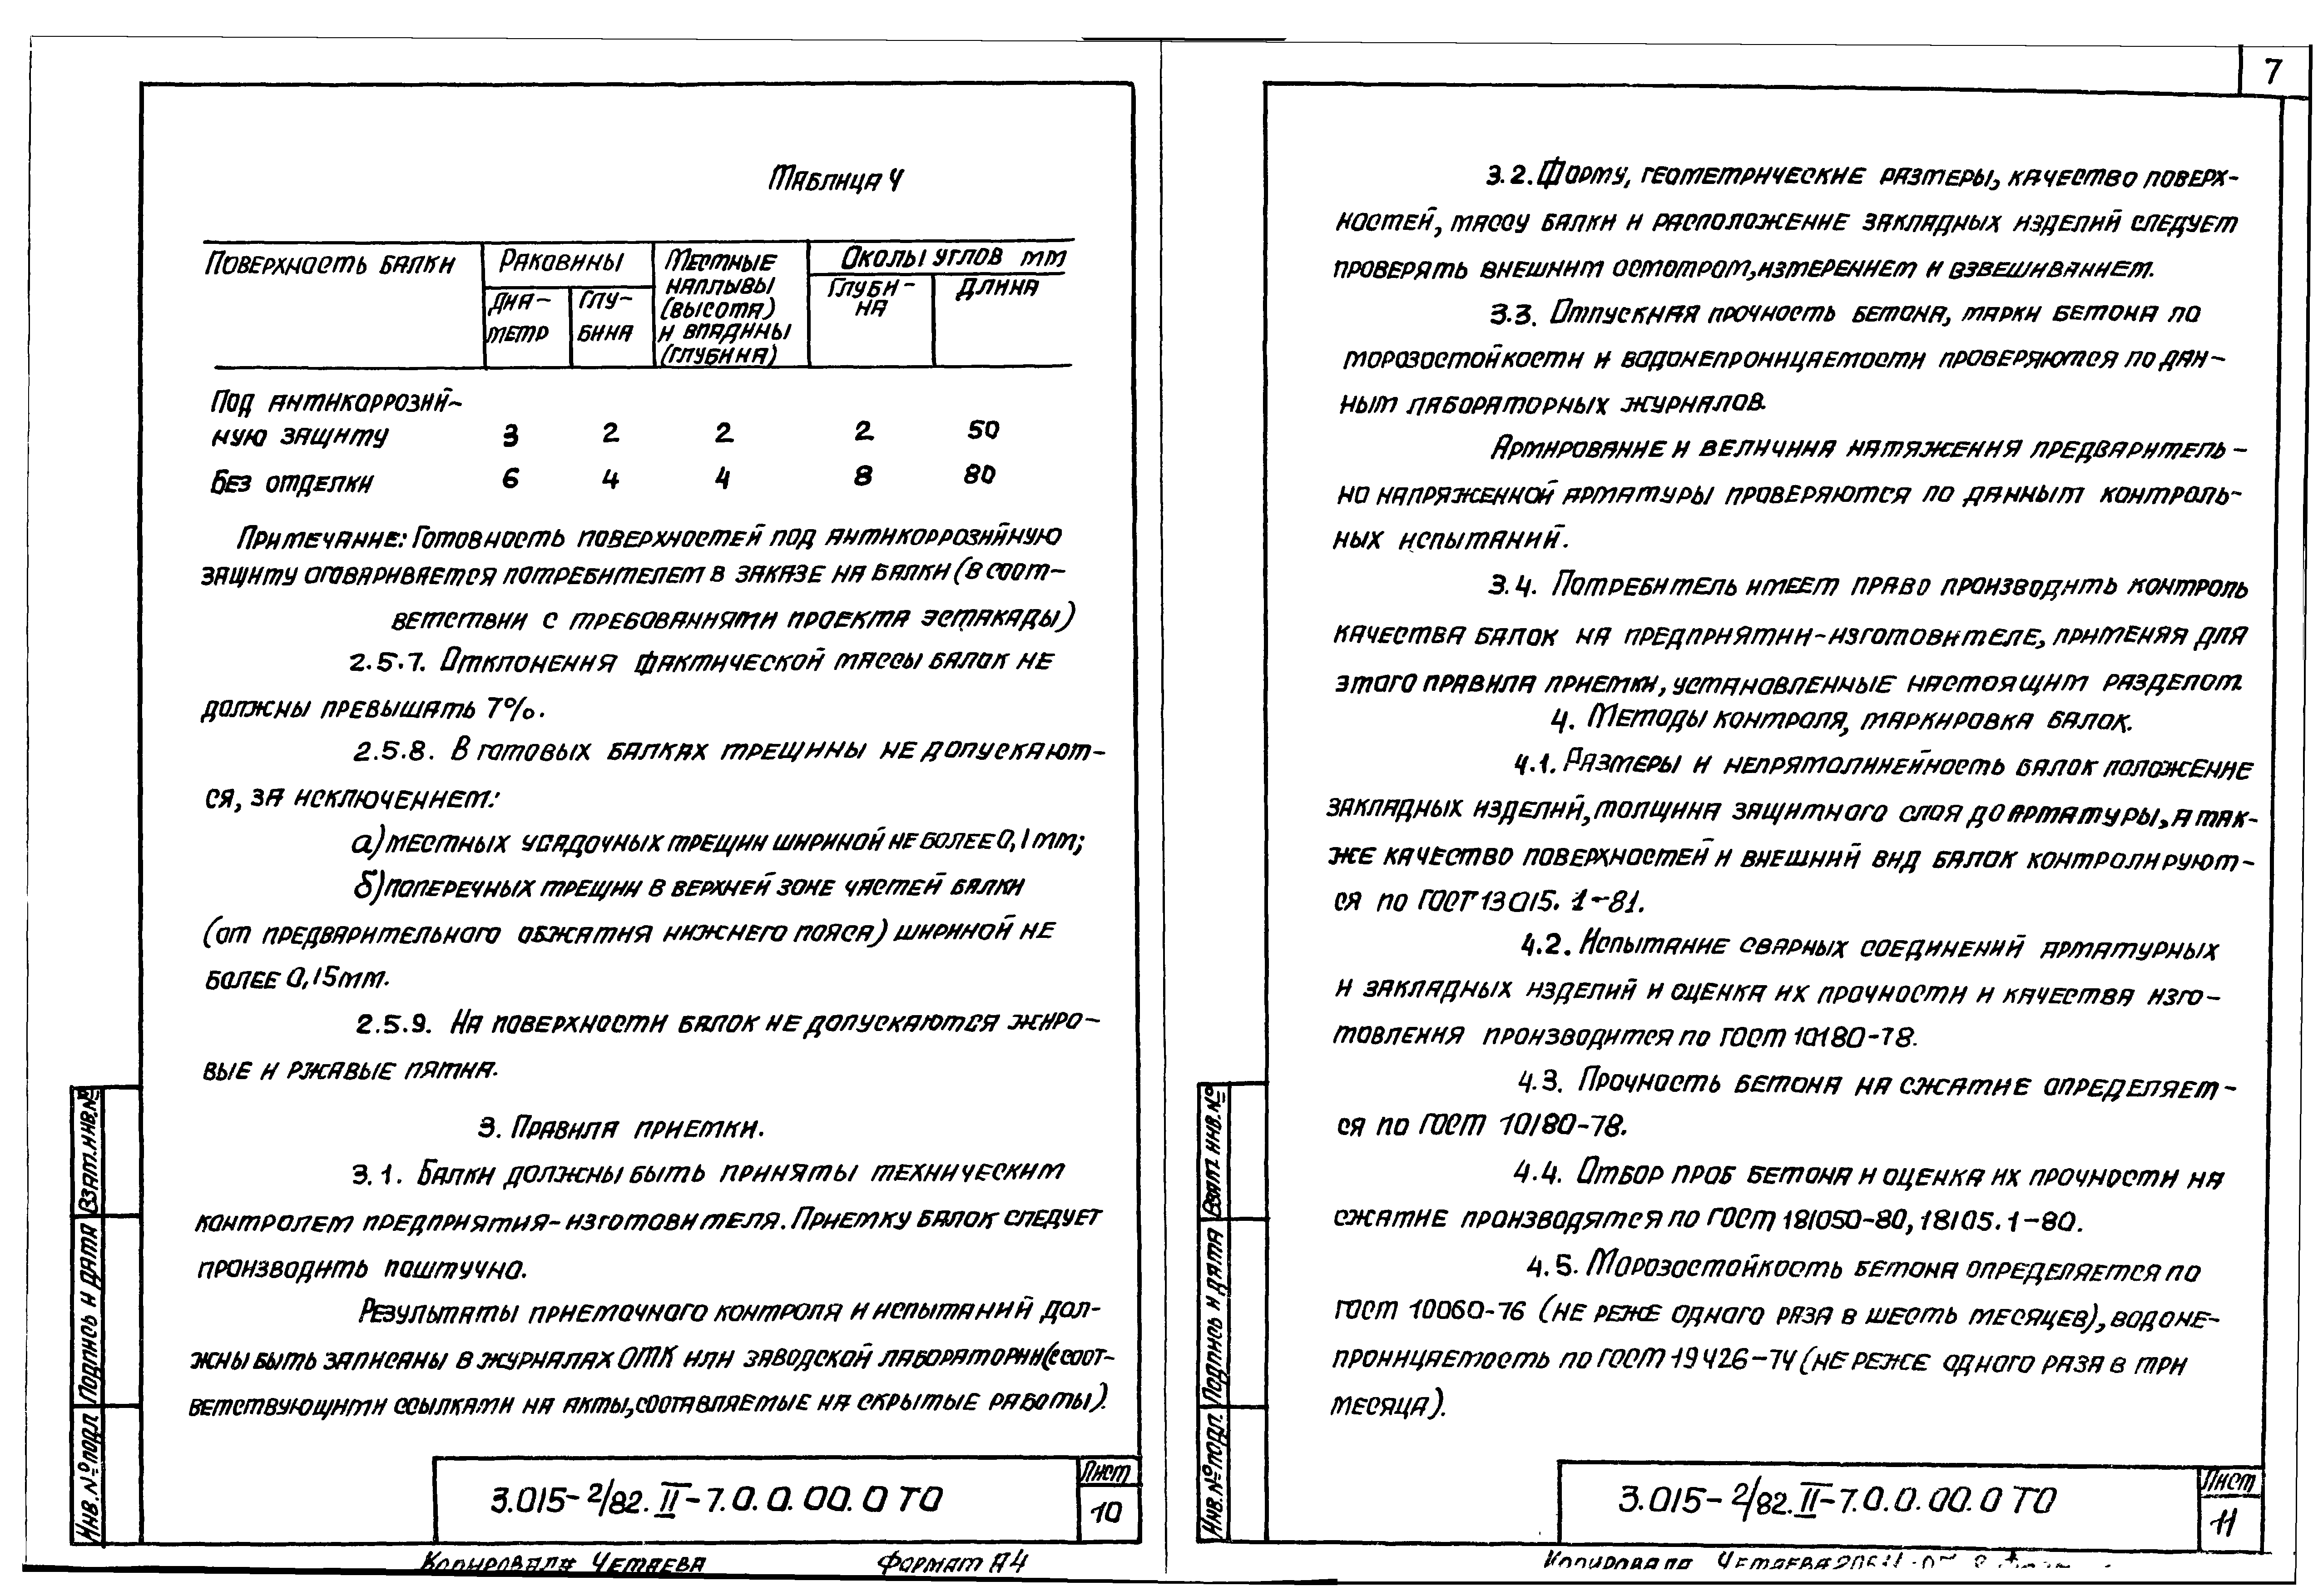 Таблица 4
Поверхность балки
Раковины
Местные наплывы (высота) и впадины (глубина)
Околы углов мм
Диа-метр
Глу-бина
Глуби-на
Длина
Под антикоррозий-
ную защиту 3 2 2 2 50
Без отделки 6 4 4 8 80
Примечание: Готовность поверхностей под антикоррозийную
защиту оговаривается потребителем в заказе на балки (в соот-
ветствии с требованиями проекта эстакады)
2.5.7. Отклонения фактической массы балок не
должны превышать 7%.
2.5.8. В готовых балках трещины не допускают-
ся, за исключением:
а) местных усадочных трещин шириной не более 0,1 мм;
б) поперечных трещин в верхней зоне частей балки
(от предварительного обжатия нижнего пояса) шириной не
более 0,15 мм.
2.5.9. На поверхности балок не допускаются жиро-
вые и ржавые пятна.
3. Правила приемки.
3.1. Балки должны быть приняты техническим
контролем предприятия-изготовителя. Приемку балок следует
производить поштучно.
Результаты приемочного контроля и испытаний дол-
жны быть записаны в журналах ОТК или заводской лаборатории (с соот-
ветствующими ссылками на акты, составляемые на скрытые работы).
Инв.№ подл. Подпись и дата Взам.инв.№
3.015-2/82.II-7.0.0.00.0 ТО
Лист
10
Копировала Четаева Формат А4
7
3.2. Форму, геометрические размеры, качество поверх-
ностей, массу балки и расположение закладных изделий следует
проверять внешним осмотром, измерением и взвешиванием.
3.3. Отпускная прочность бетона, марки бетона по
морозостойкости и водонепроницаемости проверяются по дан-
ным лабораторных журналов.
Армирование и величина натяжения предваритель-
но напряженной арматуры проверяются по данным контроль-
ных испытаний.
3.4. Потребитель имеет право производить контроль
качества балок на предприятии-изготовителе, применяя для
этого правила приемки, установленные настоящим разделом.
4. Методы контроля, маркировка балок.
4.1. Размеры и непрямолинейность балок положение
закладных изделий, толщина защитного слоя до арматуры, а так-
же качество поверхностей и внешний вид балок контролируют-
ся по ГОСТ 13015.1-81.
4.2. Испытание сварных соединений арматурных
и закладных изделий и оценка их прочности и качества изго-
товления производится по ГОСТ 10180-78.
4.3. Прочность бетона на сжатие определяет-
ся по ГОСТ 10180-78.
4.4. Отбор проб бетона и оценка их прочности на
сжатие производятся по ГОСТ 181050-80, 18105.1-80.
4.5. Морозостойкость бетона определяется по
ГОСТ 10060-76 (не реже одного раза в шесть месяцев), водоне-
проницаемость по ГОСТ 19426-74 (не реже одного раза в три
месяца).
Инв.№ подл. Подпись и дата Взам.инв.№
3.015-2/82.II-7.0.0.00.0 ТО
Лист
11
Копировала Четаева